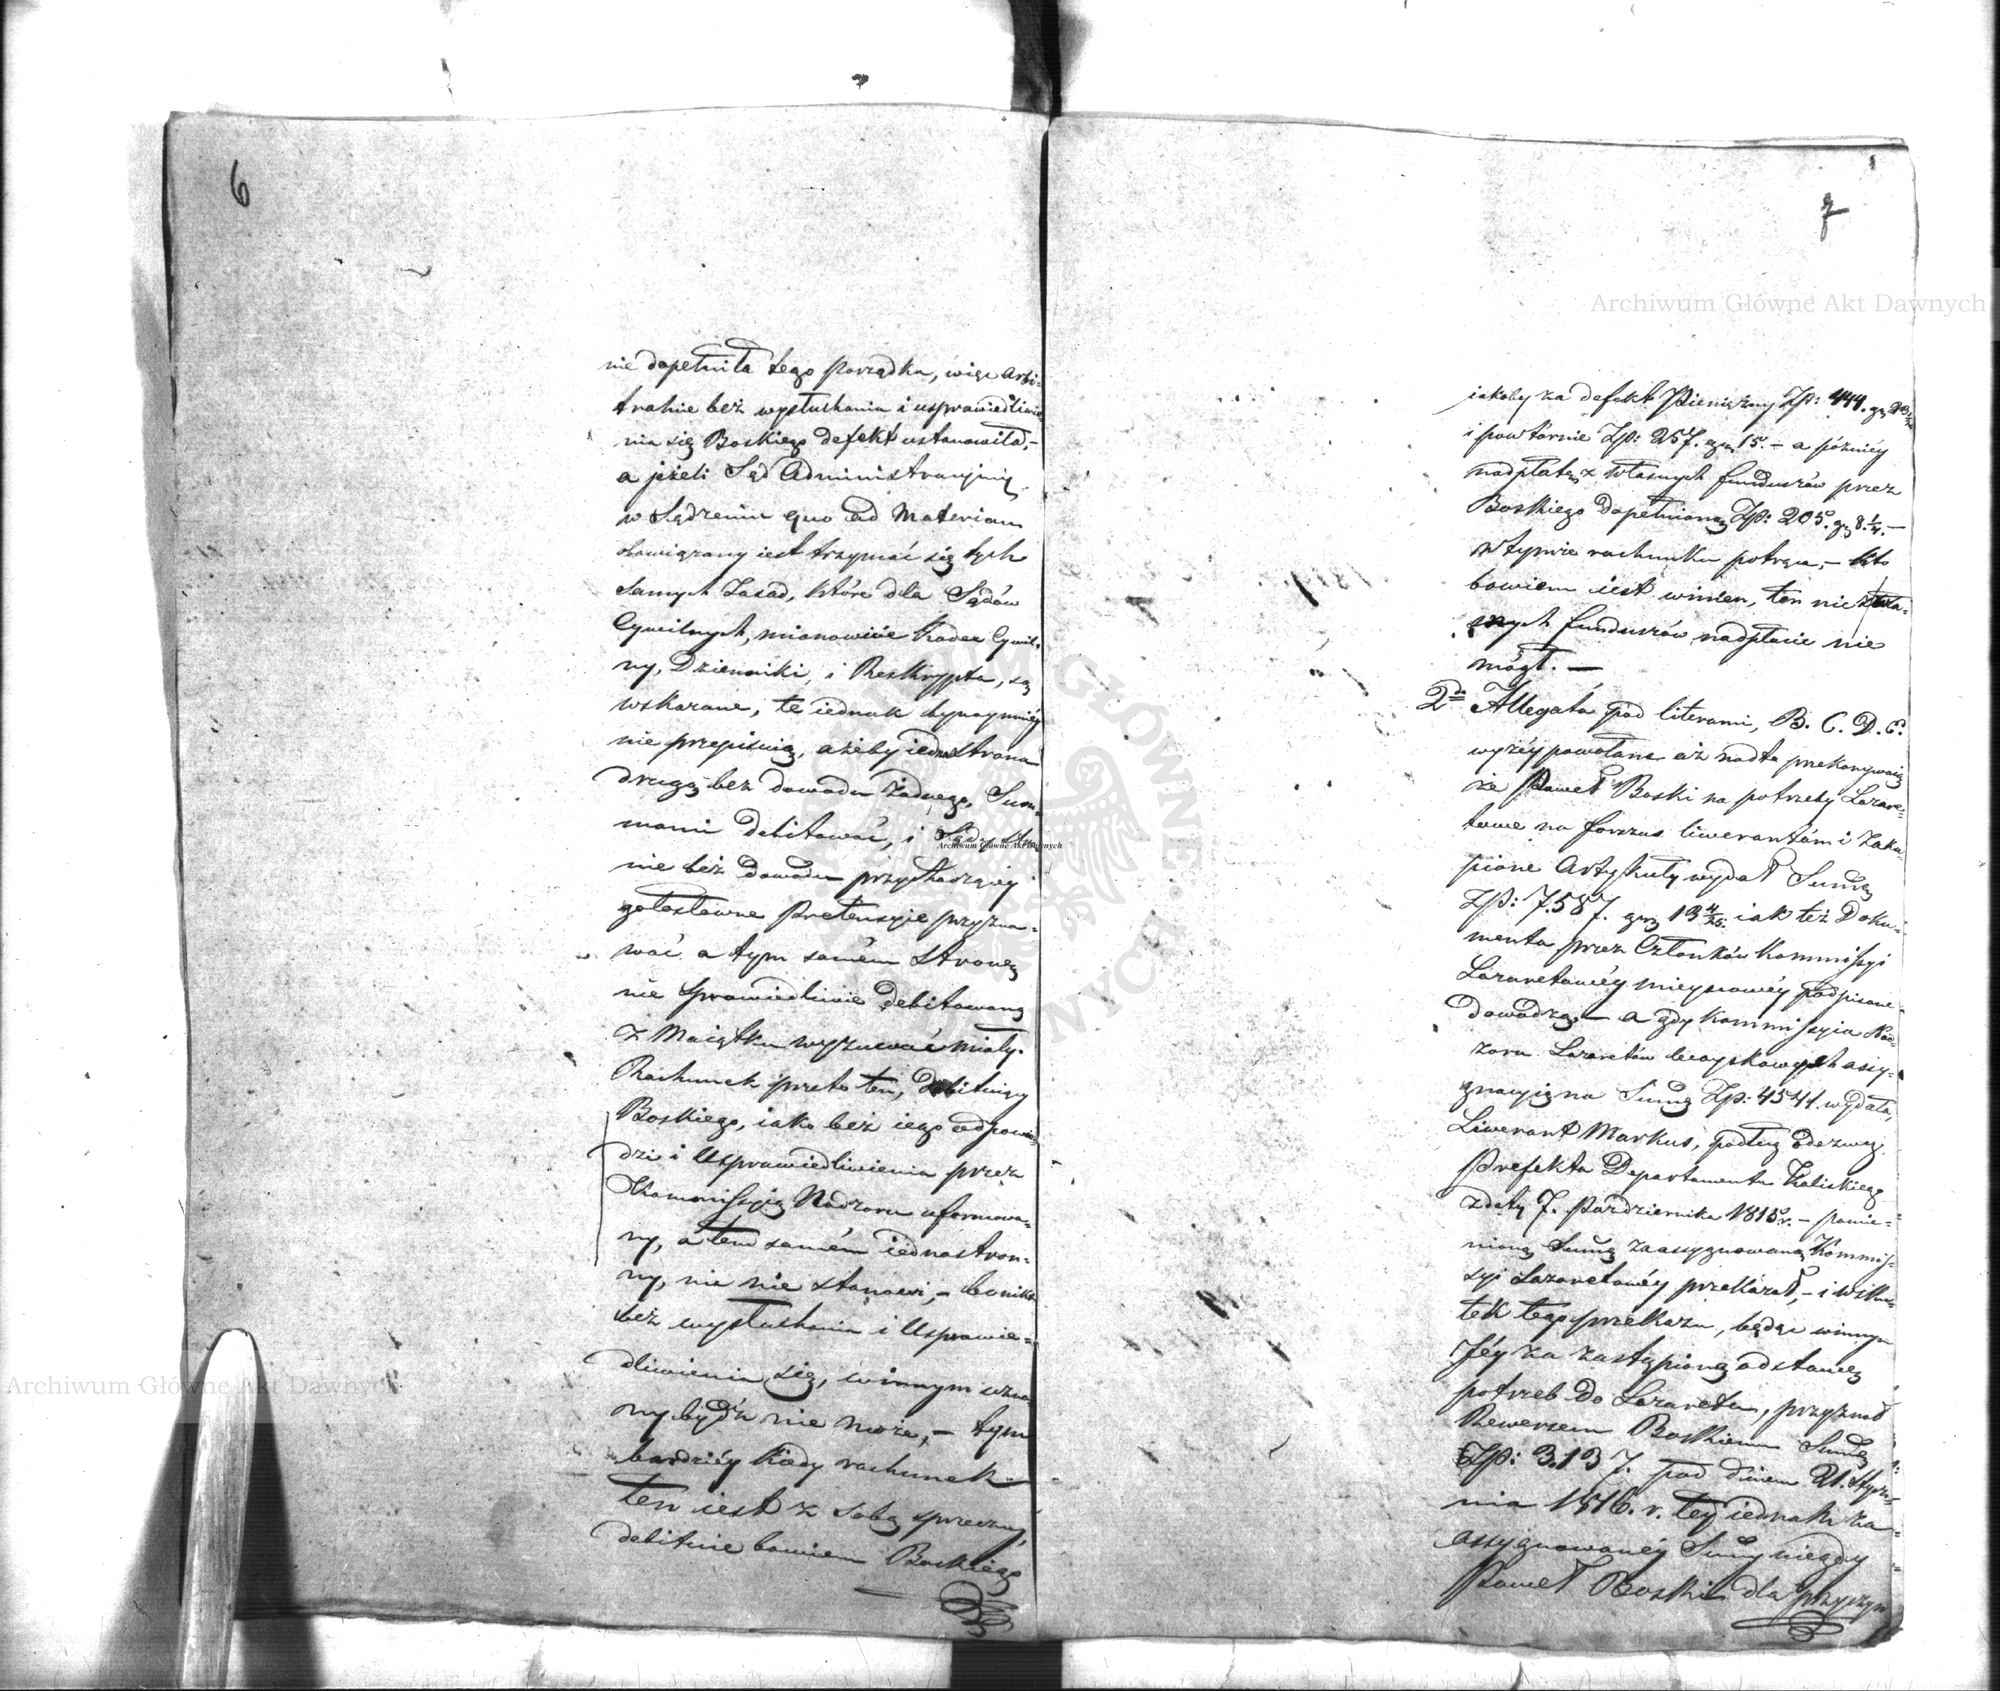 6
nie dopełniła tego Porządku, więc Arbi-
tralnie bez wysłuchania i usprawiedliwie
nia się Boskiego defekt ustanowiła,-
a jeżeli Sąd Administracyiny
w Sądzeniu quo ad Materiam
obowiązany iest trzymać się tych
samych Zasad, które dla Sądów
Cywilnych, mianowicie Kodex Cywil-
ny, Dzienniki, i Reskrypta, są
wskazane, te iednak bynaymniéy
nie przepisuią, ażeby iedna Strona
drugą bez dowodu żadnego, Sum-
mami debitować, i Sądy
nie bez Dowodu przychodzącéy
gołosłowne Pretensyie przyzna-
wać a tym samém Stronę
nie sprawiedliwie debitowaną
z Maiątku wyzuwać miały.
Rachunek przeto ten, debituiący
Boskiego, iako bez iego odpowie
dzi i Usprawiedliwienia przez
Kommissyią Nadzoru uformowa-
ny, a tem samém iednostron-
ny, nic nie stanowi, - bo nikt
bez wysłuchania i Usprawie-
dliwienia się, winnym uzna
ny bydź nie może, - tym
bardziéy kiedy rachunek
ten iest z sobą sprzeczny,
debituie bowiem Boskiego
7
iakoby za defekt Pieniężny Zp: 444. gr
i powtórnie Zp: 257. gr 15. - a póżniéy
nadpłatę z własnych funduszów przez
Boskiego dopełnioną Zp: 205. gr 8 ¼. -
w tymże rachunku potrąca, - kto
bowiem iest winien, ten nic z wła-
snych funduszów nadpłacić nie
mógł. -
2do Allegata pod literami, B. C. D. E.
wyżéy powołane aż nadto przekonywaią
że Paweł Boski na potrzeby Lazare-
towe na forszus liwerantom i zaku-
pione Artykuły wydał Summę
Zp: 7.587. gr 13 4/25. iak też Doku-
menta przez Członków Kommissyi
Lazaretowéy mieyscowéy podpisane
dowodzą, - a gdy Kommissyia Nad-
zoru Lazaretów woyskowych assy-
gnacyią na Summę Zp: 4541. wydała,
Liwerant Markus, podług Odezwy
Prefekta Departamentu Kaliskiego
z daty 7. Października 1815 r. - pomie-
nioną Summę zaassygnowaną Kommis-
syi Lazaretowéy przekazał, - i w sku
tek tego przekazu, będąc winnym
Jéy za zastąpioną odstawę
potrzeb do Lazaretu, przyznał
Rewersem Boskiemu Summę
Zp: 3.137. pod dniem 21. Stycz-
nia 1816. r. tey iednak za
assygnowanéy Summy niegdy
Paweł Boski dla przyczyn
Archiwum Główne Akt Dawnych
Archiwum Główne Akt Dawnych
Archiwum Główne Akt Dawnych